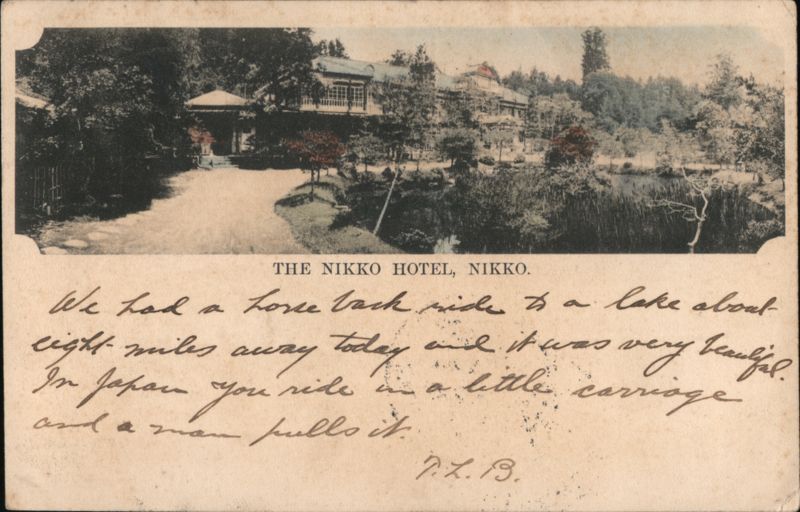 THE NIKKO HOTEL, NIKKO.
We had a horse back ride to a lake about
eight miles away today and it was very beautiful.
In Japan you ride in a little carriage
and a man pulls it.
T. L. B.